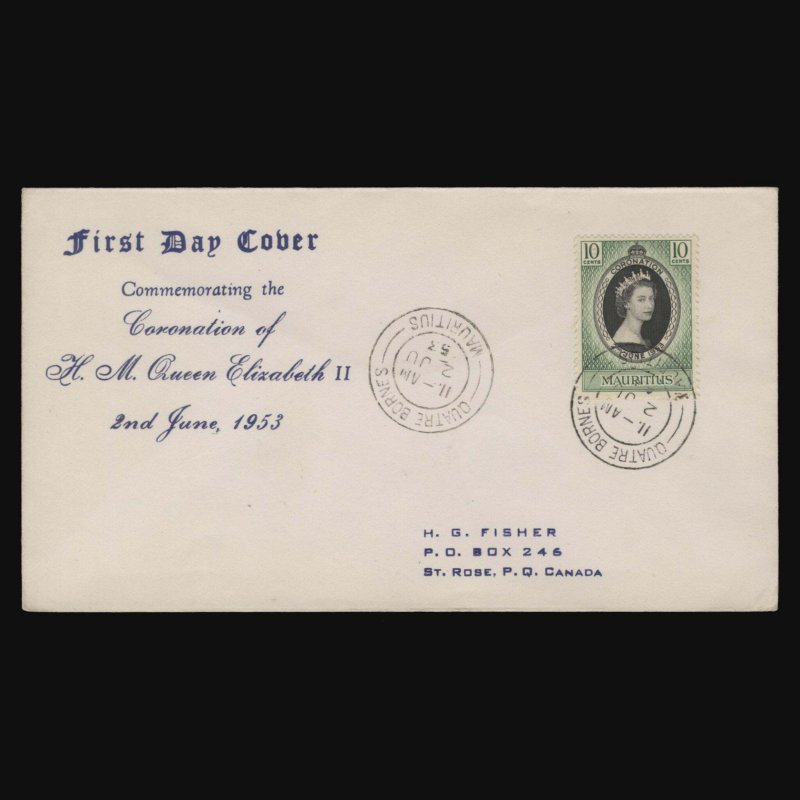 First Day Cover
Commemorating the
Coronation of
H. M. Queen Elizabeth II
2nd June, 1953
MAURITIUS
11 - AM
2 JU
53
QUATRE BORNES
10 CENTS
10 CENTS
CORONATION
2 JUNE 1953
MAURITIUS
11 - AM
2 JU
QUATRE BORNES
H. G. FISHER
P.O. BOX 246
ST. ROSE, P.Q. CANADA